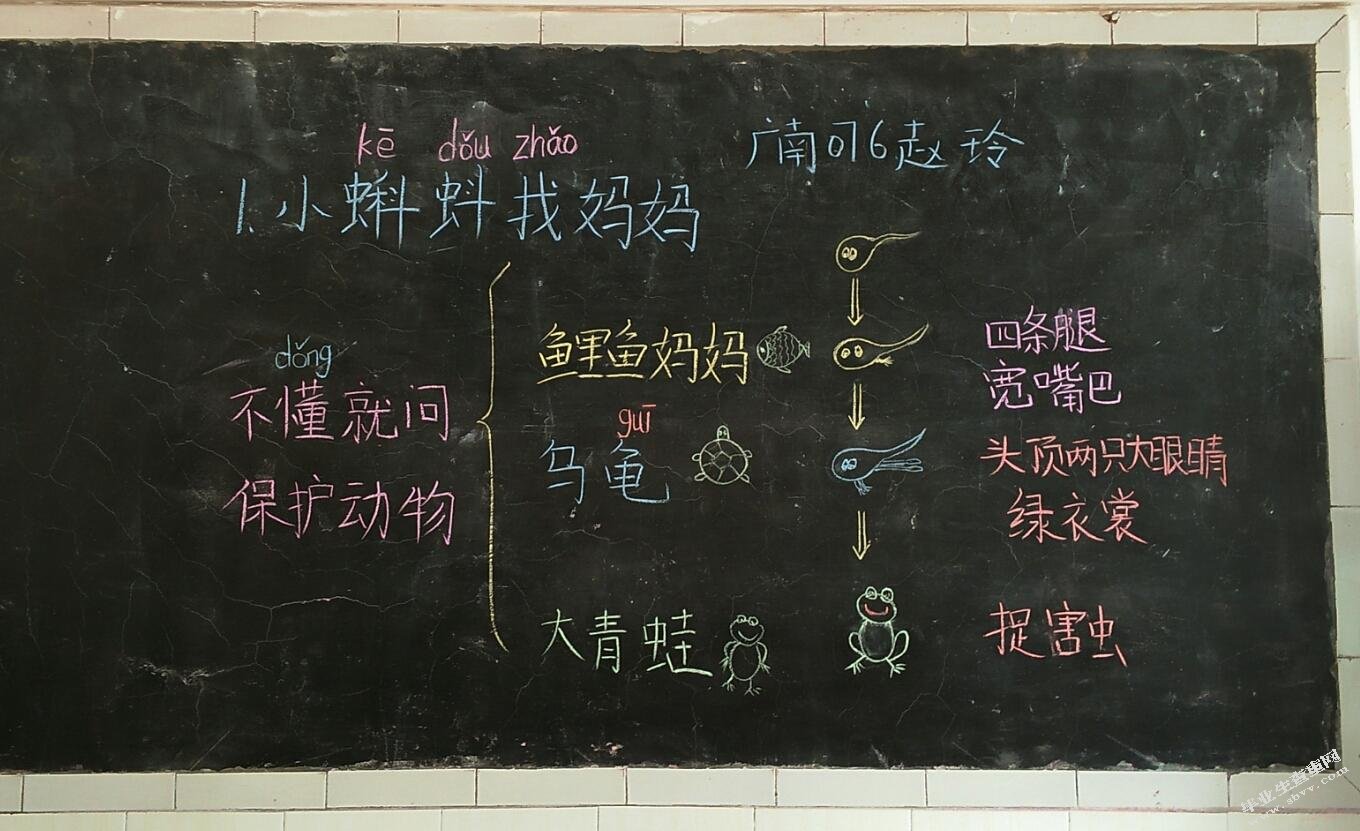 kē dǒu zhǎo
广南076赵玲
1.小蝌蚪找妈妈
鲤鱼妈妈
四条腿
宽嘴巴
dǒng
不懂就问
guī
乌龟
头顶两只大眼睛
保护动物
绿衣裳
大青蛙
捉害虫
毕业生查重网
www.sbvv.com